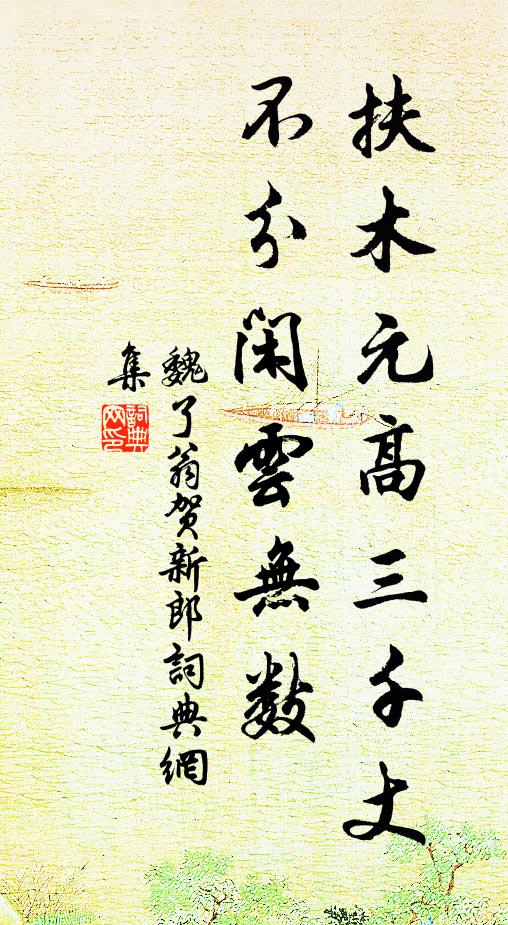 扶木元高三千丈
不分闲雲無数
魏了翁贺新郎詞典網
集
詞典網印